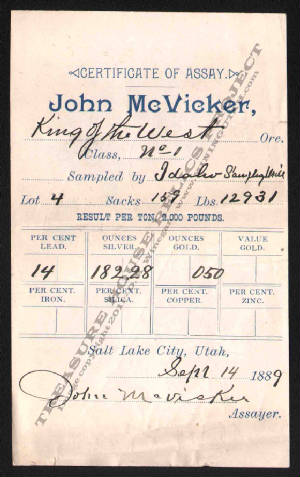 CERTIFICATE OF ASSAY.
John McVicker,
King of the West Ore.
Class, No 1
Sampled by Idaho Sampling Mill
Lot 4 Sacks 159 Lbs. 12931
RESULT PER TON, 2,000 POUNDS.
PER CENT LEAD. OUNCES SILVER. OUNCES GOLD. VALUE GOLD.
14 182.28 050
PER CENT. IRON. PER CENT. SILICA. PER CENT. COPPER. PER CENT. ZINC.
Salt Lake City, Utah,
Sept 14 1889
John McVicker
Assayer.
TREASURE HOUSE RELICS PROJECT